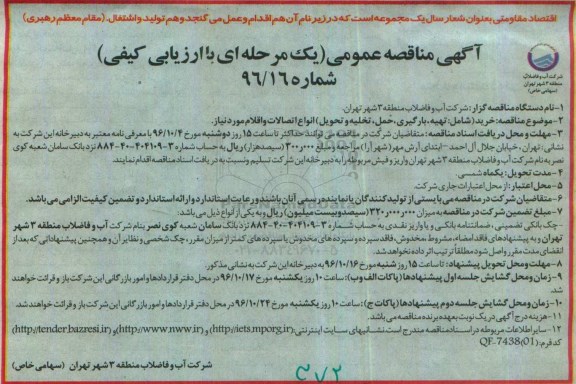 اقتصاد مقاومتی بعنوان شعار سال یک مجموعه است که در زیر نام آن هم اقدام و عمل می گنجد و هم تولید و اشتغال. (مقام معظم رهبری)
آگهی مناقصه عمومی (یک مرحله ای با ارزیابی کیفی)
شماره ۹۶/۱۶
شرکت آب و فاضلاب
منطقه ۳ شهر تهران
(سهامی خاص)
۱-نام دستگاه مناقصه گزار: شرکت آب و فاضلاب منطقه ۳ شهر تهران.
۲-موضوع مناقصه: خرید (شامل: تهیه، بارگیری، حمل، تخلیه و تحویل) انواع اتصالات و اقلام مورد نیاز.
۳-مهلت و محل دریافت اسناد مناقصه: متقاضیان شرکت در مناقصه می توانند حداکثر تا ساعت ۱۵ روز دوشنبه مورخ ۹۶/۱۰/۴ با معرفی نامه معتبر به دبیرخانه این شرکت به
نشانی: تهران، خیابان جلال آل احمد-ابتدای آرش مهر (شهرآرا) مراجعه و مبلغ ۳۰۰٫۰۰۰ (سیصدهزار) ریال به حساب شماره ۳-۴۰۴۱۰۹-۴۰-۸۸۴ نزد بانک سامان شعبه کوی
نصر به نام شرکت آب و فاضلاب منطقه ۳ شهر تهران واریز و فیش مربوطه را به دبیرخانه این شرکت تسلیم و نسبت به دریافت اسناد مناقصه اقدام نمایند.
۴-مدت تحویل: یکماه شمسی.
۵-محل اعتبار: از محل اعتبارات جاری شرکت.
۶-متقاضیان شرکت در مناقصه می بایستی از تولیدکنندگان یا نماینده رسمی آنان باشند و رعایت استاندارد و ارائه استاندارد و تضمین کیفیت الزامی می باشد.
۷-مبلغ تضمین شرکت در مناقصه به میزان ۳۲۰٫۰۰۰٫۰۰۰ (سیصد و بیست میلیون) ریال و به یکی از انواع ذیل می باشد:
-چک بانکی تضمینی، ضمانتنامه بانکی و یا واریز نقدی به حساب شماره ۳-۴۰۴۱۰۹-۴۰-۸۸۴ نزد بانک سامان شعبه کوی نصر بنام شرکت آب و فاضلاب منطقه ۳ شهر
تهران و به پیشنهادهای فاقد امضاء، مشروط، مخدوش، فاقد سپرده و سپرده های مخدوش یا سپرده های کمتر از میزان مقرر، چک شخصی و نظایر آن و همچنین پیشنهاداتی که بعد از
انقضای مدت مقرر واصل شود مطلقاً ترتیب اثر داده نخواهد شد.
۸-مهلت و محل تحویل پیشنهاد: تا ساعت ۱۵ روز شنبه مورخ ۹۶/۱۰/۱۶ به دبیرخانه این شرکت به نشانی مذکور.
۹-زمان و محل گشایش جلسه اول پیشنهادها (پاکات الف و ب): ساعت ۱۰ روز یکشنبه مورخ ۹۶/۱۰/۱۷ در محل دفتر قراردادها و امور بازرگانی این شرکت باز و قرائت خواهند
شد.
۱۰-زمان و محل گشایش جلسه دوم پیشنهادها (پاکات ج): ساعت ۱۰ روز یکشنبه مورخ ۹۶/۱۰/۲۴ در محل دفتر قراردادها و امور بازرگانی این شرکت باز و قرائت خواهند شد.
۱۱-هزینه درج آگهی در یک نوبت بعهده برنده مناقصه می باشد.
۱۲-سایر اطلاعات مربوطه در اسناد مناقصه مندرج است نشانیهای سایت اینترنتی: (http://iets.mporg.ir) و (http://www.nww.ir) و (http://tender.bazresi.ir)
کد فرم: QF-7438(01)
شرکت آب و فاضلاب منطقه ۳ شهر تهران (سهامی خاص)